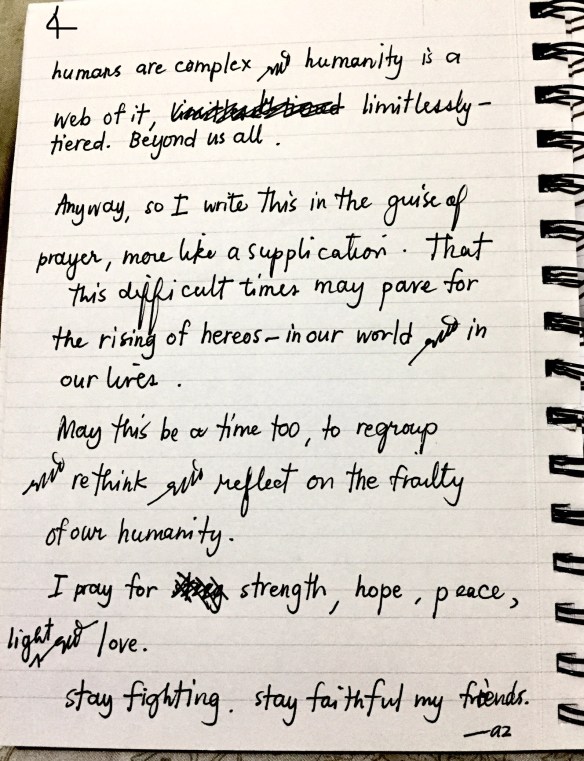 4
humans are complex and humanity is a
web of it, limitlessly-
tiered. Beyond us all.
Anyway, so I write this in the guise of
prayer, more like a supplication. That
this difficult times may pave for
the rising of hereos - in our world and in
our lives.
May this be a time too, to regroup
and rethink and reflect on the frailty
of our humanity.
I pray for strength, hope, peace,
light and love.
stay fighting. stay faithful my friends.
-az